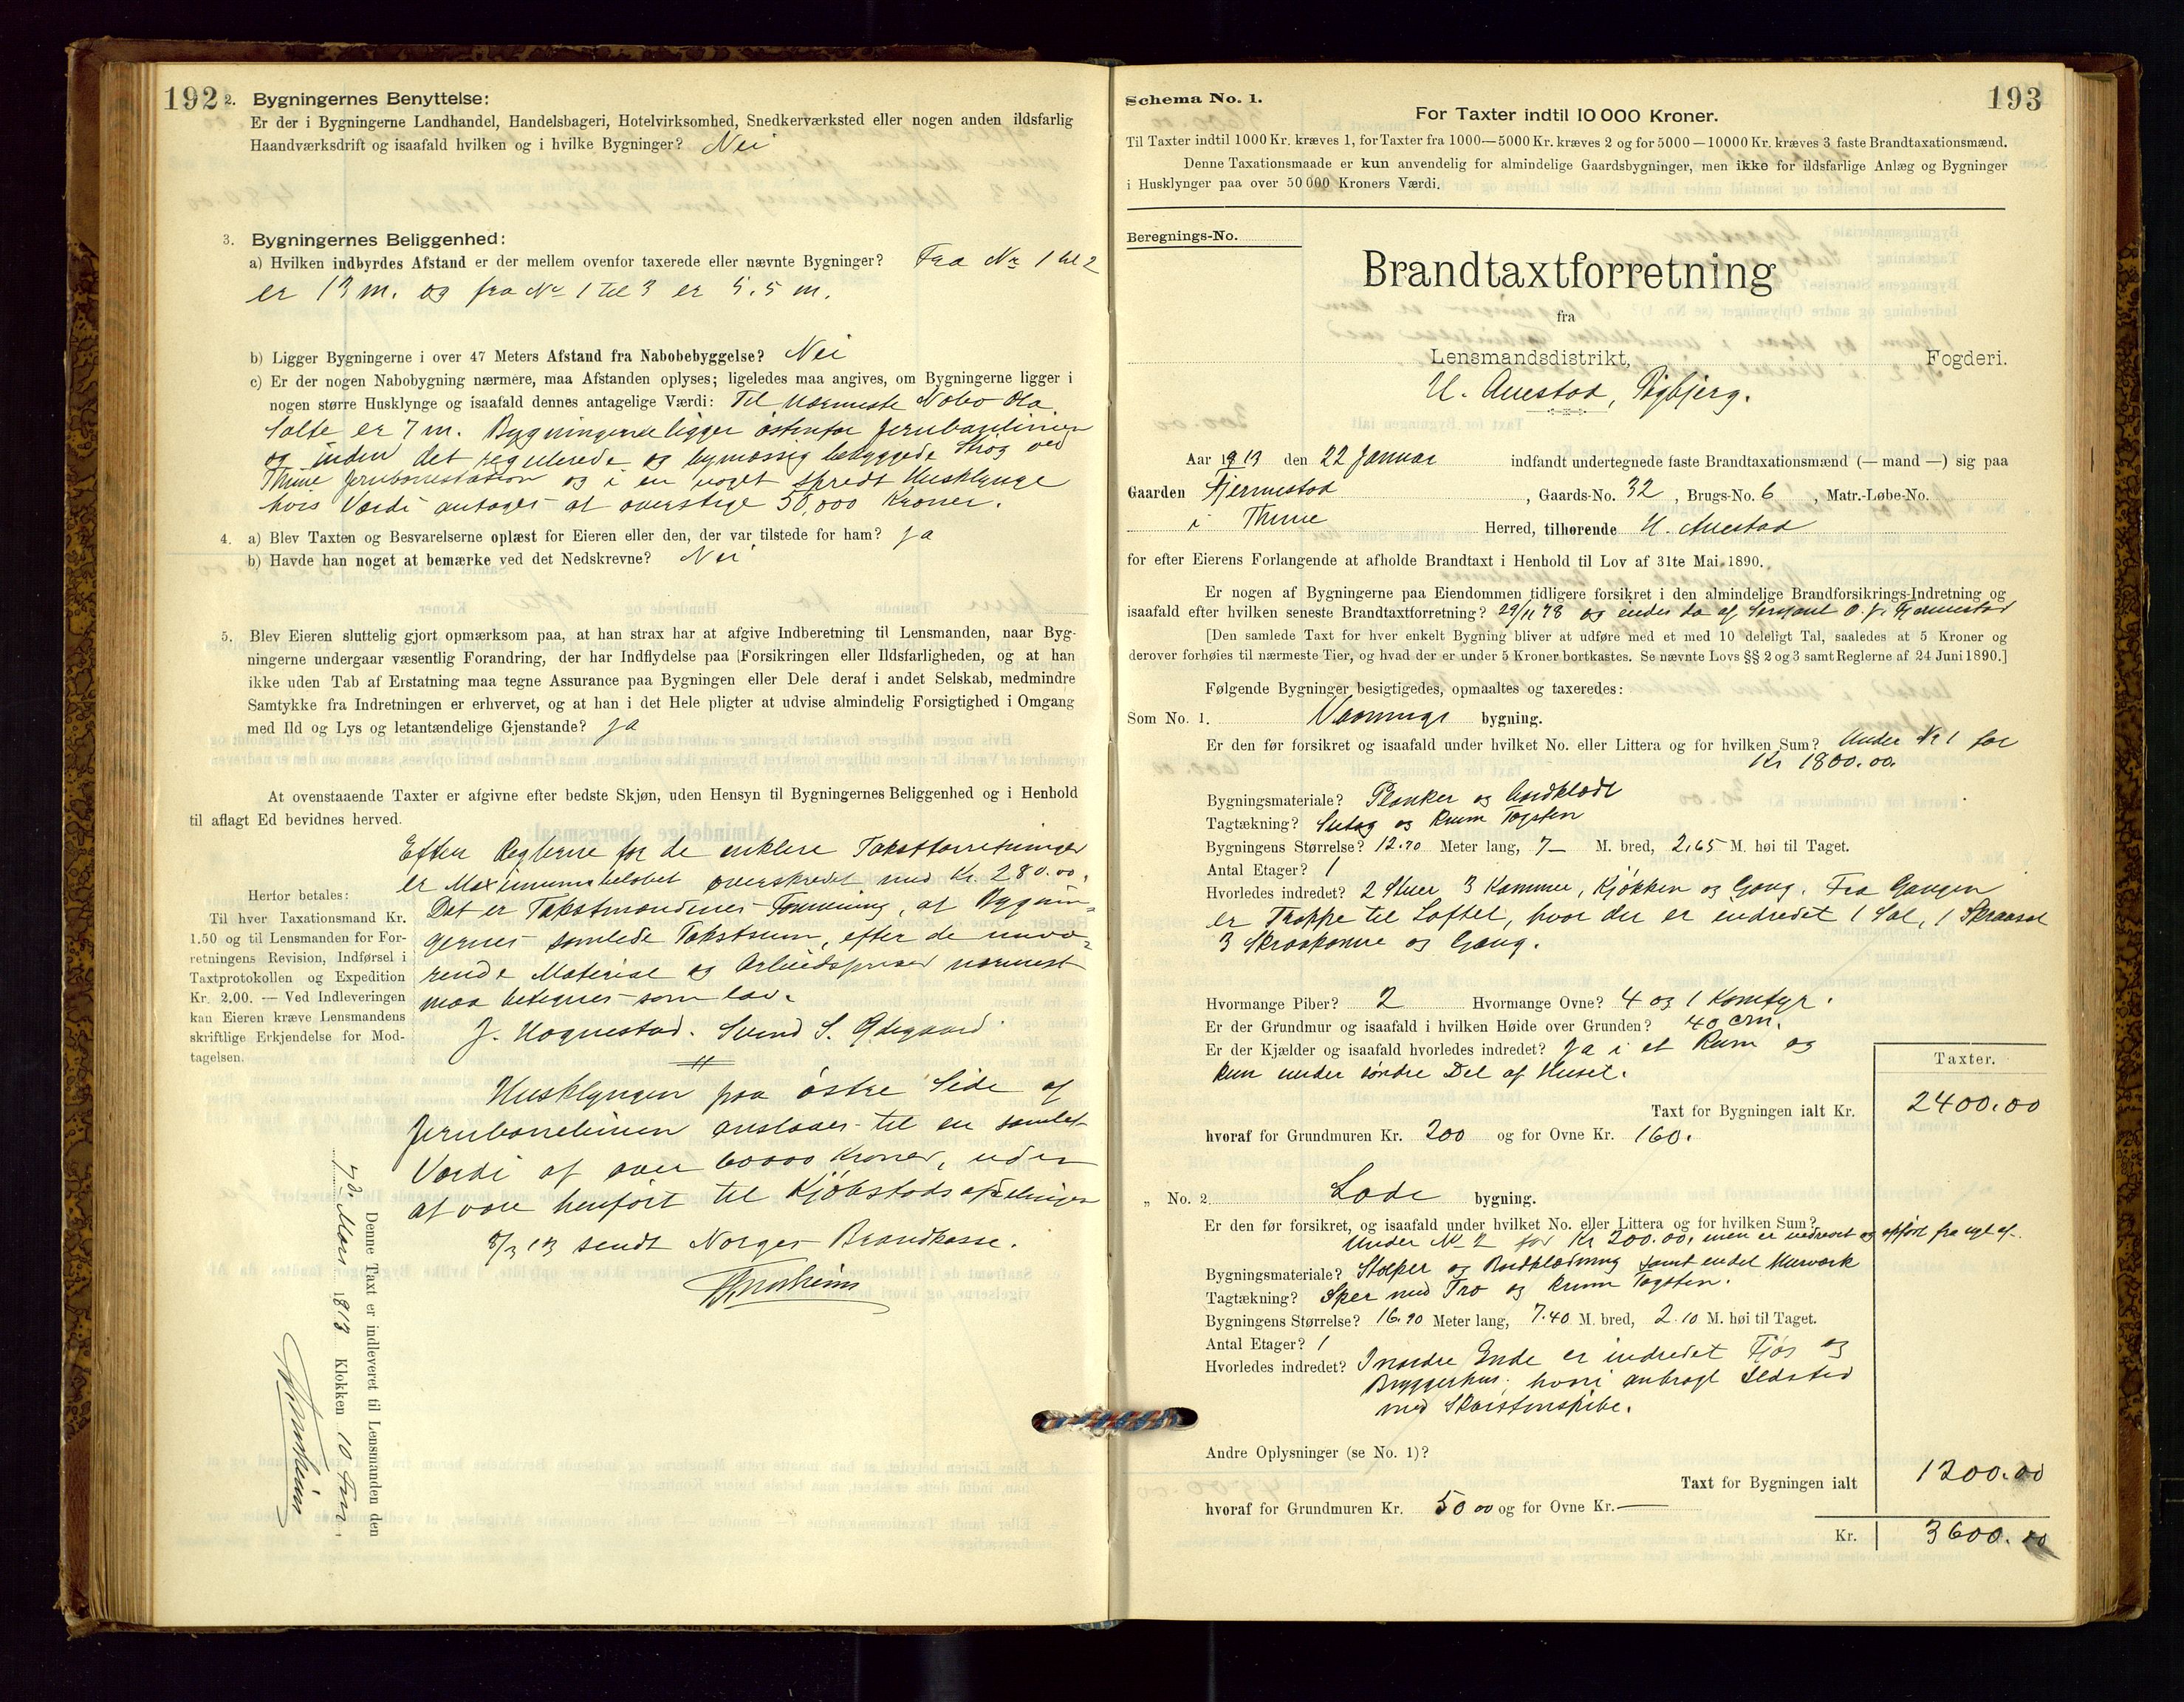 192
2. Bygningernes Benyttelse:
Er der i Bygningerne Landhandel, Handelsbageri, Hotelvirksomhed, Snedkerværksted eller nogen anden ildsfarlig
Haandværksdrift og isaafald hvilken og i hvilke Bygninger? Nei
3. Bygningernes Beliggenhed:
a) Hvilken indbyrdes Afstand er der mellem ovenfor taxerede eller nævnte Bygninger? Fra No 1 til 2
er 13 m. og fra No 1 til 3 er 5.5 m.
b) Ligger Bygningerne i over 47 Meters Afstand fra Nabobebyggelse? Nei
c) Er der nogen Nabobygning nærmere, maa Afstanden oplyses; ligeledes maa angives, om Bygningerne ligger i
nogen større Husklynge og isaafald dennes antagelige Værdi: Til nærmeste Nabo Ola
Salte er 7 m. Bygningerne ligger østenfor Jernbanelinien
og inden det regulerede og bymæssig bebyggede Strøg ved
Thime Jernbanestation og i en noget spredt Husklynge
hvis Værdi antages at overstige 50,000 Kroner.
4. a) Blev Taxten og Besvarelserne oplæst for Eieren eller den, der var tilstede for ham? Ja
b) Havde han noget at bemærke ved det Nedskrevne? Nei
5. Blev Eieren sluttelig gjort opmærksom paa, at han strax har at afgive Indberetning til Lensmanden, naar Byg-
ningerne undergaar væsentlig Forandring, der har Indflydelse paa Forsikringen eller Ildsfarligheden, og at han
ikke uden Tab af Erstatning maa tegne Assurance paa Bygningen eller Dele deraf i andet Selskab, medmindre
Samtykke fra Indretningen er erhvervet, og at han i det Hele pligter at udvise almindelig Forsigtighed i Omgang
med Ild og Lys og letantændelige Gjenstande? Ja
At ovenstaaende Taxter er afgivne efter bedste Skjøn, uden Hensyn til Bygningernes Beliggenhed og i Henhold
til aflagt Ed bevidnes herved.
Efter Reglerne for de enklere Takstforretninger
er Maximumsbeløbet overskredet med Kr. 280.00.
Det er Takstmændenes Formening, at Bygnin-
gernes samlede Takstsum, efter de nuvæ-
rende Materiale og Arbeidspriser nærmest
maa betegnes som lav.
J. Haanestad. Svend S. Ødegaard
Herfor betales:
Til hver Taxationsmand Kr.
1.50 og til Lensmanden for For-
retningens Revision, Indførsel i
Taxtprotokollen og Expedition
Kr. 2.00. — Ved Indleveringen
kan Eieren kræve Lensmandens
skriftlige Erkjendelse for Mod-
tagelsen.
Husklyngen paa østre Side af
Jernbanelinien anslaaes til en samlet
Værdi af over 60000 Kroner, uden
at være henført til Kjøbstadsafdelingen
8/3 13 sendt Norges Brandkasse.
Denne Taxt er indleveret til Lensmanden den
7de Mars 1913 Klokken 10 Form.
193
Schema No. 1.
For Taxter indtil 10 000 Kroner.
Til Taxter indtil 1000 Kr. kræves 1, for Taxter fra 1000—5000 Kr. kræves 2 og for 5000—10000 Kr. kræves 3 faste Brandtaxationsmænd.
Denne Taxationsmaade er kun anvendelig for almindelige Gaardsbygninger, men ikke for ildsfarlige Anlæg og Bygninger
i Husklynger paa over 50 000 Kroners Værdi.
Beregnings-No.
Brandtaxtforretning
fra
Lensmandsdistrikt, Fogderi.
U. Auestad,
Aar 1913 den 22 Januar indfandt undertegnede faste Brandtaxationsmænd (— mand —) sig paa
Gaarden Fjermestad, Gaards-No. 32, Brugs-No. 6, Matr.-Løbe-No.
i Thime Herred, tilhørende U. Auestad
for efter Eierens Forlangende at afholde Brandtaxt i Henhold til Lov af 31te Mai 1890.
Er nogen af Bygningerne paa Eiendommen tidligere forsikret i den almindelige Brandforsikrings-Indretning og
isaafald efter hvilken seneste Brandtaxtforretning? 29/11 78 og eiedes da af Sersjant O. J. Fjermestad
[Den samlede Taxt for hver enkelt Bygning bliver at udføre med et med 10 deleligt Tal, saaledes at 5 Kroner og
derover forhøies til nærmeste Tier, og hvad der er under 5 Kroner bortkastes. Se nævnte Lovs §§ 2 og 3 samt Reglerne af 24 Juni 1890.]
Følgende Bygninger besigtigedes, opmaaltes og taxeredes:
Som No. 1. Vaanings bygning.
Er den før forsikret og isaafald under hvilket No. eller Littera og for hvilken Sum? Under No 1 for
Kr 1800.00.
Bygningsmateriale? Planker og bordklædt
Tagtækning? Sutag og Krum Tagsten
Bygningens Størrelse? 12.70 Meter lang, 7— M. bred, 2,65 M. høi til Taget.
Antal Etager? 1
Hvorledes indredet? 2 Stuer 3 Kammer, Kjøkken og Gang. Fra Gangen
er Trappe til Loftet, hvor der er indredet 1 Sal, 1 Skraasal
3 Skraakamre og Gang.
Hvormange Piber? 2 Hvormange Ovne? 4 og 1 Komfyr.
Er der Grundmur og isaafald i hvilken Høide over Grunden? 40 cm.
Er der Kjælder og isaafald hvorledes indredet? Ja i et Rum og
kun under søndre Del af Huset.
Taxter.
Taxt for Bygningen ialt Kr. 2400.00
hvoraf for Grundmuren Kr. 200 og for Ovne Kr. 160.
„ No. 2. Lade bygning.
Er den før forsikret, og isaafald under hvilket No. eller Littera og for hvilken Sum?
Under No 2 for Kr 200.00, men er nedrevet og opført fra nyt af.
Bygningsmateriale? Stolper og Bordklædning samt endel Murværk
Tagtækning? Sper med Tro og Krum Tagsten.
Bygningens Størrelse? 16.90 Meter lang, 7.40 M. bred, 2.10 M. høi til Taget.
Antal Etager? 1
Hvorledes indredet? I nordre Ende er indredet Fjøs og
Bryggerhus, hvori anbragt Ildsted
med Skorstenspibe.
Andre Oplysninger (se No. 1)?
Taxt for Bygningen ialt 1200.00
hvoraf for Grundmuren Kr. 50 00 og for Ovne Kr. —
Kr. 3600.00